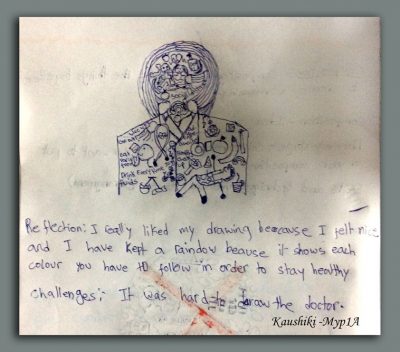 Reflection: I really liked my drawing beacause I felt nice
and I have kept a rainbow beause it shows each
colour you have to follow in order to stay healthy
challenges:- It was hard to draw the doctor.
Kaushiki -Myp1A